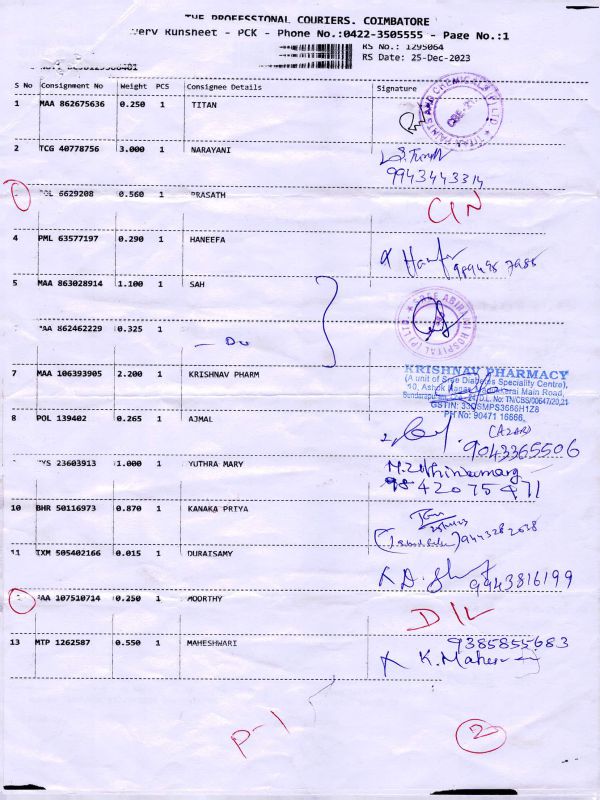 THE PROFESSIONAL COURIERS. COIMBATORE
very Runsheet - PCK - Phone No.:0422-3505555 - Page No.:1
RS No.: 1295064
RS Date: 25-Dec-2023
S No Consignment No Weight PCS Consignee Details Signature
1 MAA 862675636 0.250 1 TITAN
2 TCG 40778756 3.000 1 NARAYANI
9943443314
6629208 0.560 1 PRASATH
CIN
4 PML 63577197 0.290 1 HANEEFA
5 MAA 863028914 1.100 1 SAH
AA 862462229 0.325 1
Do
7 MAA 106393905 2.200 1 KRISHNAV PHARM
KRISHNAV PHARMACY
(A unit of Sree Diabetes Speciality Centre),
PH No: 90471 16666
8 POL 139402 0.265 1 AJMAL
(AZAR)
9043365506
YS 23603913 1.000 1 YUTHRA MARY
9842075471
10 BHR 50116973 0.870 1 KANAKA PRIYA
11 IXM 505402166 0.015 1 DURAISAMY
9943816199
AA 107510714 0.250 1 MOORTHY
D/L
13 MTP 1262587 0.550 1 MAHESHWARI
9385855683
K. Maheswari
P-1
2